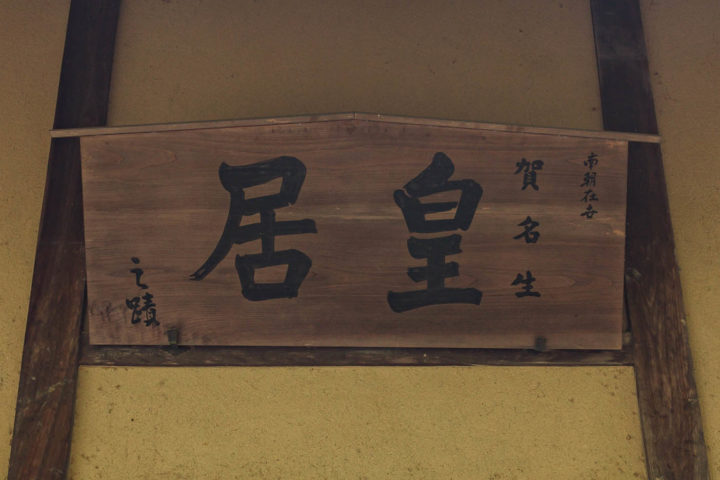 南朝在㐂
賀名生
皇居
之蹟